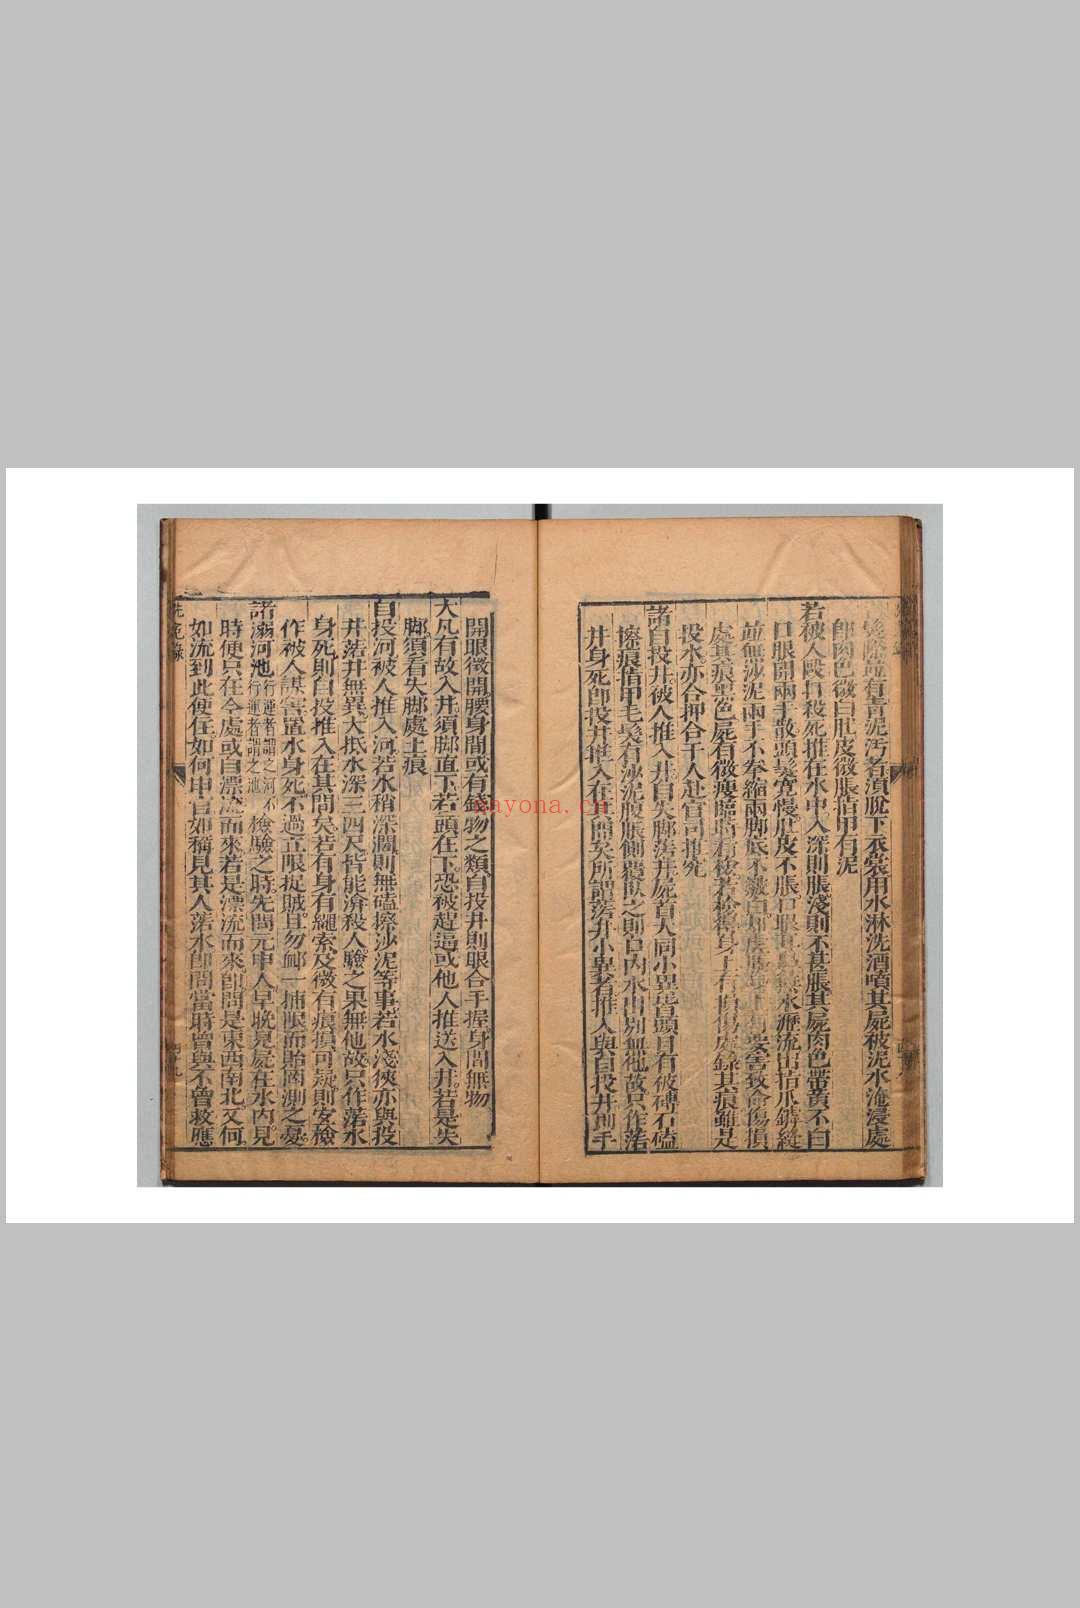 髮際並有青泥污者須脫下衣裳用水淋洗酒噴其屍被泥水淹浸處
即肉色微白肚皮微脹指甲有泥
若被人毆打殺死推在水中入深則脹淺則不甚脹其屍肉色帶黃不白
口眼開兩手散頭髮寬慢肚皮不脹口眼耳鼻無水瀝流出指爪罅縫
並無沙泥兩手不拳縮兩脚底不皺白却虛脹身上有要害致命傷損
處其痕黑色屍有微瘦臨時看檢若檢得身上有損傷處錄其痕雖是
投水亦合押合干人赴官司推究
諸自投井被人推入井自失脚落井屍首大同小異皆頭目有被磚石磕
擦痕指甲毛髮有沙泥腹脹側覆臥之則口內水出別無他故只作落
井身死即投井推入在其間矣所謂落井小異者推入與自投井則手
開眼微開腰身間或有錢物之類自投井則眼合手握身間無物
大凡有故入井須脚直下若頭在下恐被趕逼或他人推送入井若是失
脚須看失脚處土痕
自投河被人推入河若水稍深濶則無磕擦沙泥等事若水淺狹亦與投
井落井無異大抵水深三四尺皆能渰殺人驗之果無他故只作落水
身死則自投推入在其間矣若有身有繩索及微有痕損可疑則宜檢
作被人謀害置水身死不過立限捉賊且勿䘏一捕限而貽罔測之憂
諸溺河池行運者謂之河不行運者謂之池檢驗之時先問元申人早晚見屍在水內見
時便只在今處或自漂流而來若是漂流而來即問是東西南北又何
如流到此便住如何申官如稱見其人落水即問當時曾與不曾救應
洗冤錄
nayona.cn